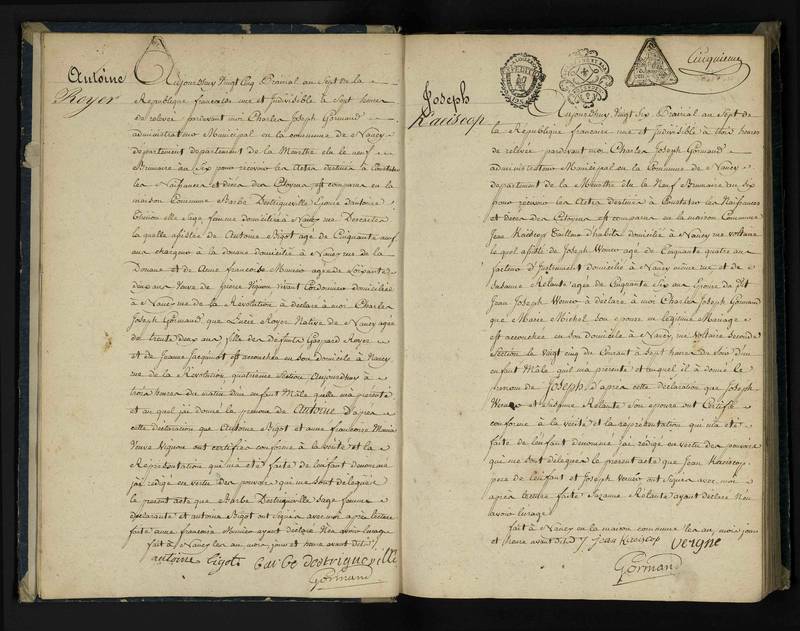 Antoine
Royer
Aujourdhuy vingt Cinq Prairial an Sept de la
République francoise une et Indivisible à Sept heures
de relevée pardevant moi Charles Joseph Gormand
administrateur Municipal en la commune de Nancy
departement departement de la Meurthe élu le neuf
Brumaire an Six pour recevoir les Actes destinés à Constater
les Naissances et décès des Citoyens est comparue en la
maison Commune Barbe Destrigueville Epouse d'antoine
elle Sage femme domiciliée à Nancy rue Descartes
la quelle assistée de Antoine Bigot agé de Cinquante neuf
ans chargeur à la douane domicilié à Nancy rue de la
Douane et de Anne francoise Munier agée de Soixante
deux ans Veuve de pierre Vignon vivant Cordonnier domiciliée
à Nancy rue de la Révolution à déclaré à moi Charles
Joseph Gormand, que Lucie Royer Native de Nancy agée
de trente deux ans fille des défunts Gaspard Royer
et de Jeanne Jacquinot est accouchée en son domicile à Nancy
rue de la Révolution, quatrieme Section Aujourdhuy à
trois heures du matin d'un Enfant Mâle quelle m'a présenté
et au quel j'ai donné le prenom de Antoine D'après
cette déclaration que Antoine Bigot et anne francoise Munier
Veuve Vignon ont certifiés conforme à la vérité et la
Représentation qui m'a été faite de l'enfant dénommé
j'ai rédigé en vertu des pouvoirs qui me sont délégués
le present acte que Barbe Destrigueville Sage femme
déclarante et antoine Bigot ont Signés avec moi après lecture
faite anne francoise Munier ayant declaré Ne avoir l'usage
fait à Nancy les an mois, jour et heure avant dits
antoine Bigot Barbe destrigueville
Gormand
Cinquieme
Joseph
Kaeiscop
Aujourdhuy Vingt Six Prairial an Sept de
la République francaise une et Indivisible à trois heures
de relevée, pardevant moi Charles Joseph Gormand
administrateur Municipal en la Commune de Nancy
departement de la Meurthe élu le Neuf Brumaire an Six
pour recevoir les Actes destinés à Constater les Naissances
et décès des Citoyens est comparu en la maison Commune
Jean Kaeiscop Tailleur d'habits domicilié à Nancy rue voltaire
le quel assisté de Joseph Werner agé de Cinquante quatre ans
facteur d'Instruments domicilié à Nancy même rue et de
Susanne Relante agée de Cinquante Six ans Epouse du dit
Jean Joseph Werner à déclaré à moi Charles Joseph Gormand
que Marie Michel Son epouse en légitime Mariage
est accouchée en son domicile à Nancy, rue Voltaire Seconde
Section le vingt cinq du Courant à Sept heures du Soir d'un
enfant Mâle quil m'a présenté et auquel il à donné le
prénom de Joseph, d'après cette déclaration que Joseph
Werner et Susanne Relante Son épouse ont Certifié
conforme à la vérité et la représentation qui m'a été
faite de l'enfant dénommé j'ai rédigé en vertu des pouvoirs
qui me sont délégués le présent acte que Jean Kaeiscop
pere de l'enfant et Joseph Werner ont signés avec moi
après lecture faite Susanne Relante ayant declaré Non
avoir l'usage
fait à Nancy en la maison commune les an mois jour
et heure avant dits jean Kaeiscop Vergne
Gormand